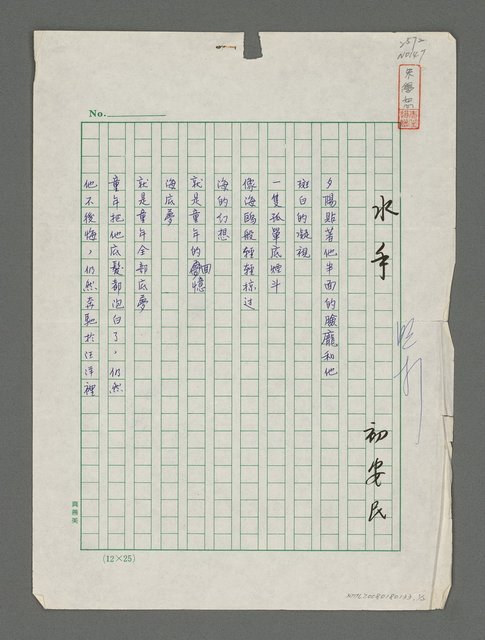 2572
No147
No.
水手
初安民
夕陽貼著他半面的臉龐和他
斑白的凝視
一隻孤單底煙斗
像海鷗般輕輕掠過
海的幻想
就是童年的回憶
海底夢
就是童年全部底夢
童年把他底髮都泡白了,仍然
他不後悔,仍然奔馳於汪洋裡
真善美
(12×25)